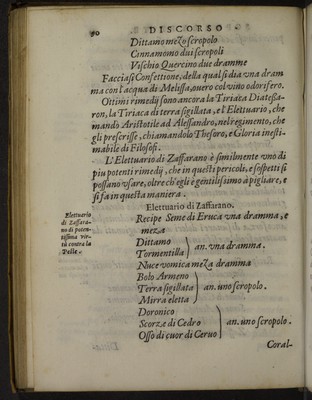 90 DISCORSO
Dittamo mezo scropolo
Cinnamomo dui scropoli
Vischio Quercino due dramme
Facciasi Confettione, della qual si dia vna dram
ma con l'acqua di Melissa, ouero col vino odorifero.
Ottimi rimedij sono ancora la Tiriaca Diatessa-
ron, la Tiriaca di terra sigillata, e l'Elettuario, che
mandò Aristotile ad Alessandro, nel regimento, che
gli prescrisse, chiamandolo Thesoro, e Gloria inesti-
mabile di Filosofi.
L'Elettuario di Zaffarano è similmente vno di
piu potenti rimedij, che in questi pericoli, e sospetti si
possano vsare, oltre ch'egli è gentilissimo à pigliare, e
si fa in questa maniera.
Elettuario
di Zaffara-
no di poten-
tissima vir-
tù contra la
Peste.
Elettuario di Zaffarano.
Recipe Seme di Eruca vna dramma, e
meza
Dittamo
Tormentilla
an. vna dramma.
Nuce vomica meza dramma
Bolo Armeno
Terra sigillata
Mirra eletta
an. uno scropolo.
Doronico
Scorze di Cedro
Osso di cuor di Ceruo
an. uno scropolo.
Coral-